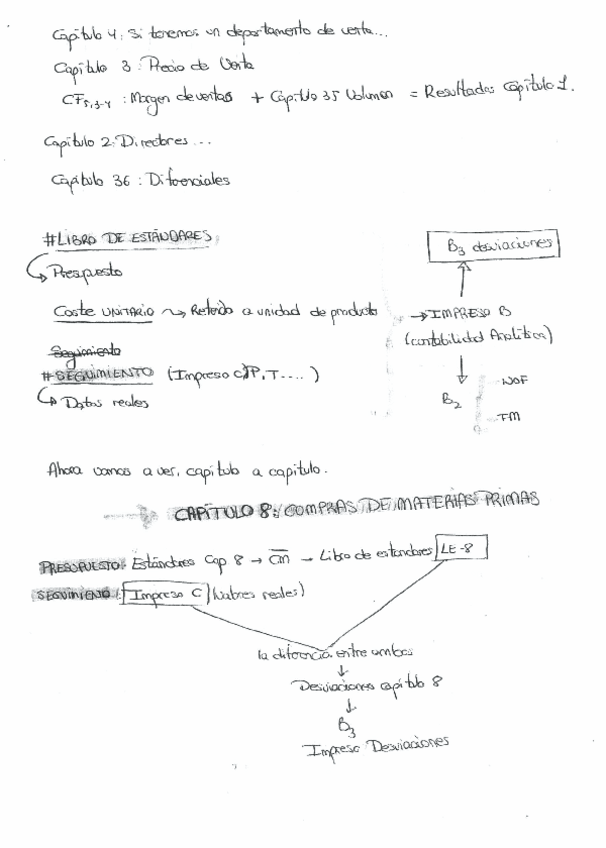 Capítulo 4: Si tenemos un departamento de venta...
Capítulo 3: Precio de Venta
CF5,3-4 : Margen de ventas + Capítulo 35 Volumen = Resultados Capítulo 1.
Capítulo 2: Directores...
Capítulo 36: Diferenciales
#LIBRO DE ESTÁNDARES
Presupuesto
B3 desviaciones
Coste UNITARIO → Referido a unidad de producto
→ IMPRESO B
(contabilidad Analítica)
Seguimiento
#SEGUIMIENTO (Impreso C, P, T....)
Datos reales
B2
NOF
TM
Ahora vamos a ver, capítulo a capítulo.
CAPÍTULO 8: COMPRAS DE MATERIAS PRIMAS
PRESUPUESTO: Estándares Cap 8 → cm → Libro de estandares LE-8
SEGUIMIENTO: Impreso C (Valores reales)
la diferencia entre ambas
↓
Desviaciones capítulo 8
↓
B3
Impreso Desviaciones